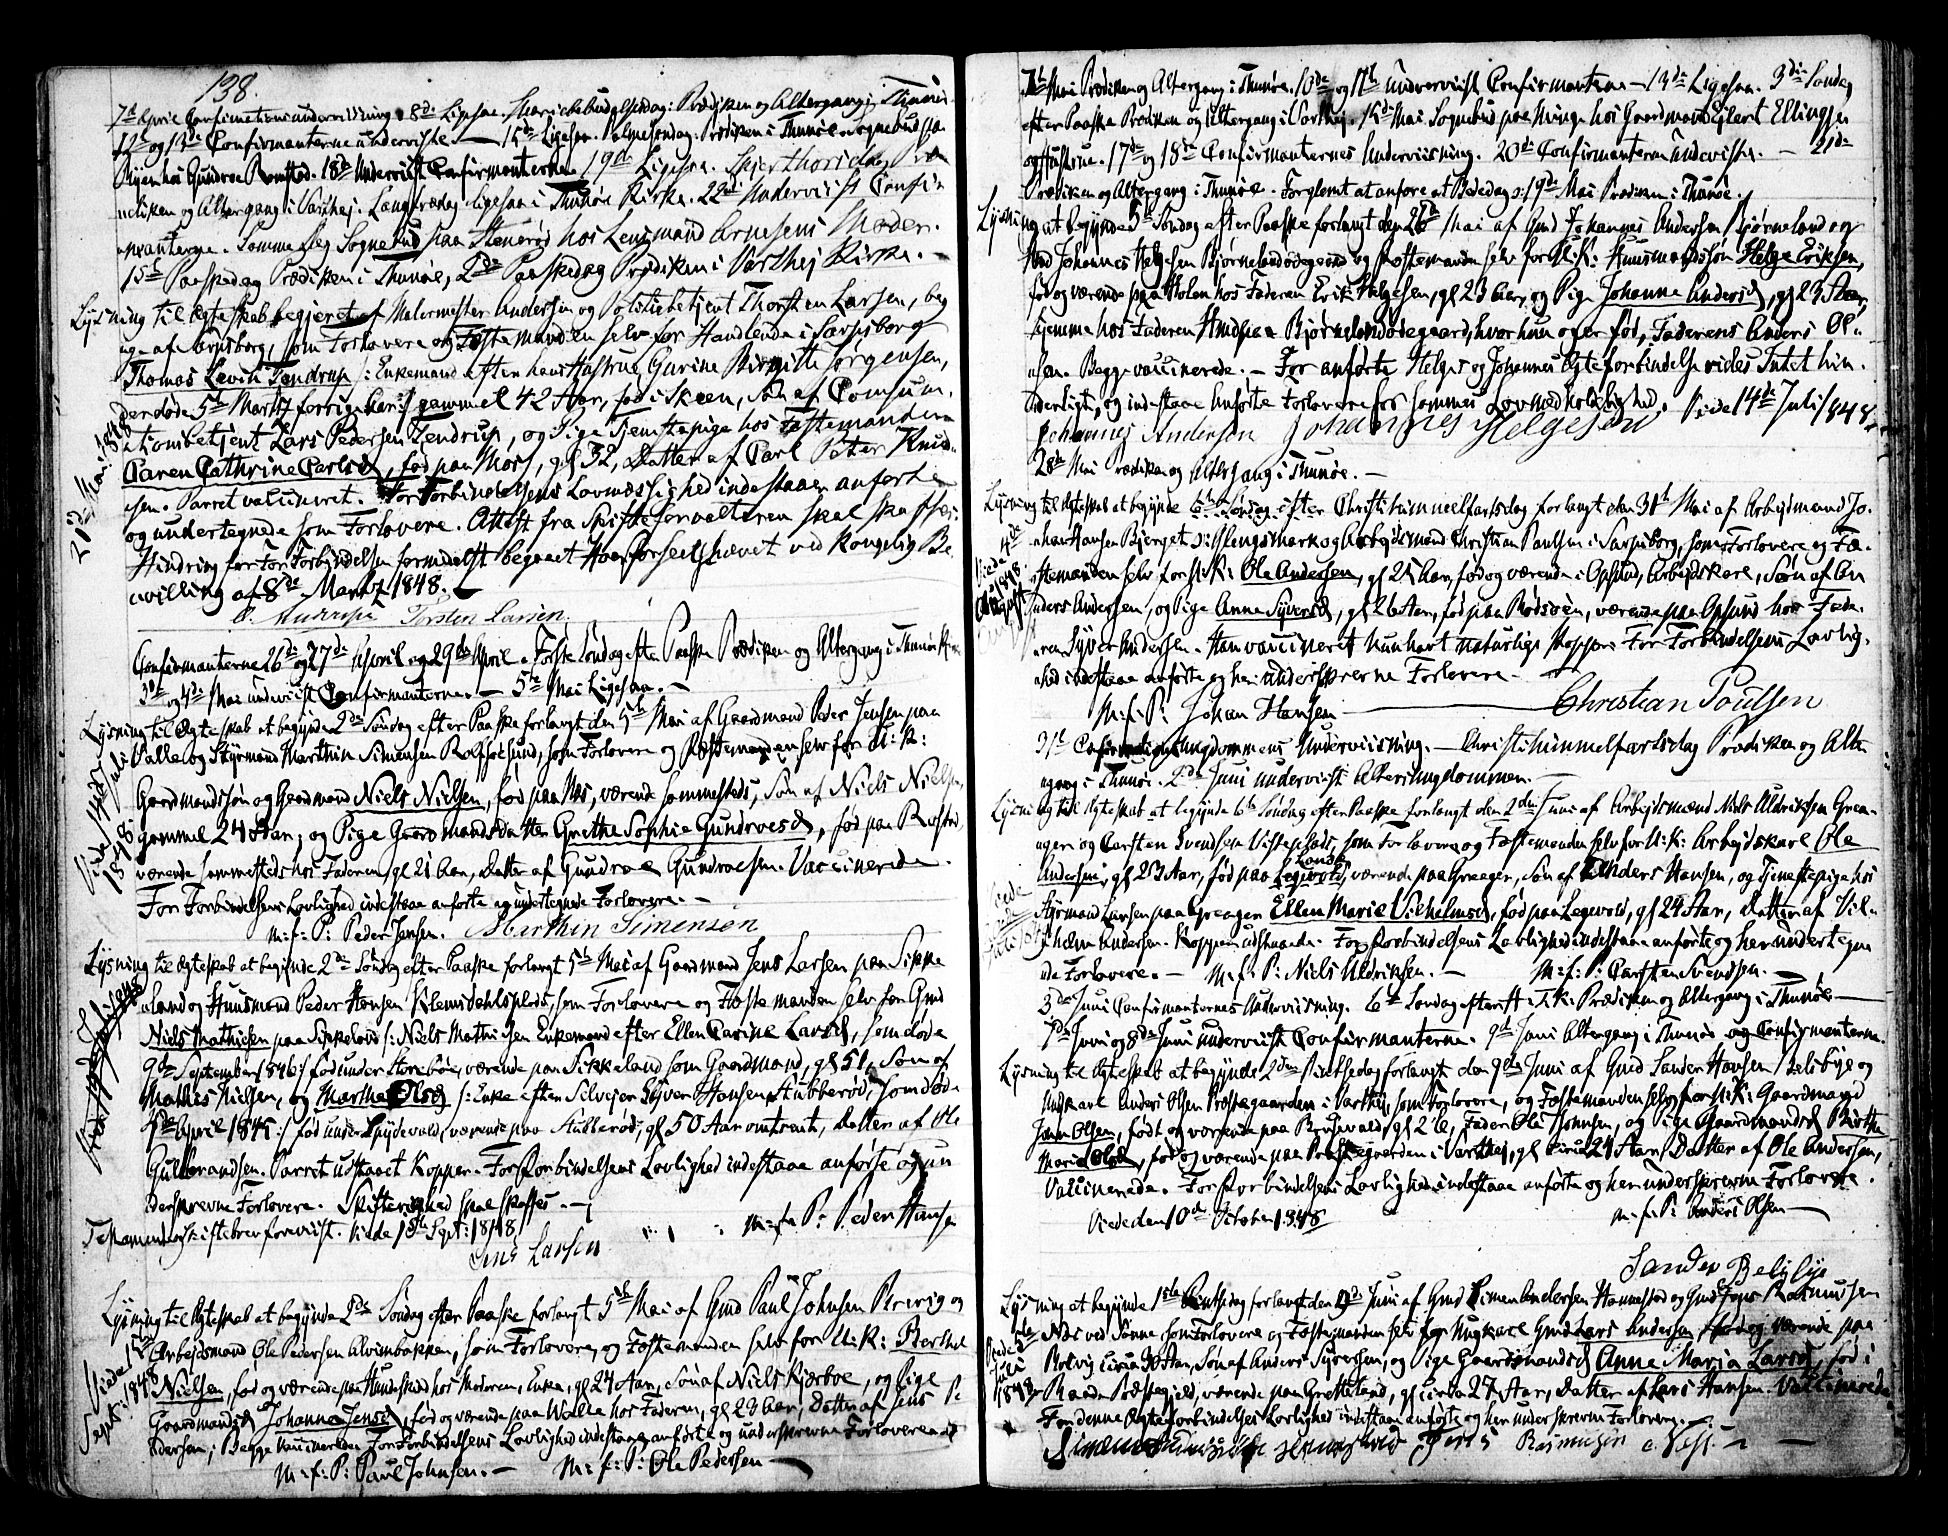 138.
7de April Confirmationsundervisning. 8de Ligesaa. Mariæ Bebudelsesdag: Prædiken og Altergang i Thunøe.
12te og 13de Confirmanterne underviiste. — 15de Ligesaa. Palmesøndag: Prædiken i Thunøe. Sognebud paa
hos Gundroe Romstad. 18de Underviist Confirmanterne. 19de Ligesaa. Skjærthorsdag Præ
diken og Altergang i Varthej. Langfredag ligesaa i Thunöe Kirke. 22de Underviist Confir
manterne. Samme Dag Sognebud paa Stenerød hos Lensmand Arnesens Moder.
1ste Paaskedag Prædiken i Thunöe, 2den Paaskedag Prædiken i Varthej Kirke. —
Lysning til Ægteskab begjeret af Malermester Andersen og Politibetjent Thorsten Larsen, beg
ge af Sarpsborg, som Forlovere og Fæstemanden selv for Handlende i Sarpsborg
Thomas Levin Tendrup /: Enkemand efter hans Hustrue Gurine Birgitte Jørgensen,
der døde 5te Marts forrige Aar :/ gammel 42 Aar, fød i Skeen, Søn af Consum
tionsbetjent Lars Pedersen Tendrup, og Pige Tjenestepige hos Fæstemanden
Caren Cathrine Carlsd, fød paa Moss, gl 32, Datter af Carl Peter Knud
sen. Parret vaccineret. For Forbindelsens Lovmæssighed indestaaer anførte
og undertegnede som Forlovere. Attest fra Skifteforvalteren skal skaffes.
Hindring for Forbindelsen formedelst begaaet Hoer Forseelse hævet ved Kongelig Be
villing af 8de Marts 1848.
Torsten Larsen.
Confirmanterne 26de og 27de April og 29de April. Første Søndag efter Paaske Prædiken og Altergang i Thunöe
3de og 4de Mai underviist Confirmanterne. — 5te Mai Ligesaa. —
Lysning til Ægteskab at begynde 2den Søndag efter Paaske forlangt den 5te Mai af Gaardmand Peder Jensen paa
Valle og Styrmand Marthin Simensen Rolfsøesund, som Forlovere og Fæstemanden selv for U: K:
Gaardmandssøn og Gaardmand Niels Nielsen, fød paa Næs, værende sammesteds, Søn af Niels Nielsen,
gammel 24 Aar; og Pige Gaardmandsdatter Grethe Sophie Gundroesd, fød paa
værende sammesteds hos Faderen, gl 21 Aar, Datter af Gundroe Gundroesen. Vaccinerede.
For Forbindelsens Lovlighed indestaae anførte og undertegnede Forlovere. —
M: f: P: Peder Jensen. Marthin Simensen
Lysning til Ægteskab at begynde 2den Søndag efter Paaske forlangt 5te Mai af Gaardmand Jens Larsen paa Sikke
land og Huusmand Peder Hansen Klemsdahlsplads, som Forlovere og Fæstemanden selv for Gmd
Niels Mathiesen paa Sikkeland /: Niels Mathiesen Enkemand efter Ellen Carine Larsd, som døde
9de September 1846 :/ fød under Storebøe, værende paa Sikkeland som Gaardmand, gl 51, Søn af
Mathis Nielsen, og Marthe Olsd /: Enke efter Silvester Hansen Stubberød, som døde
5te April 1845 :/ fød under Spydevold, værende paa Stubberød, gl 50 Aar omtrent, Datter af Ole
Gulbrandsen. Parret udstaaet Kopper. For Forbindelsens Lovlighed indestaae anførte og un
derskrevne Forlovere. Skifterighed skal skaffes. —
Testament og Skiftebrev foreviist. Viede 15de Sept: 1848. M: f: P: Peder Hansen
Jens Larsen
Lysning til Ægteskab at begynde 2den Søndag efter Paaske forlangt 5te Mai af Gmd Paul Johnsen og
Arbejdsmand Ole Pedersen Alvimbakken, som Forlovere, og Fæstemanden selv for U: K: Berthel
Nielsen, fød og værende paa Hundskind hos Moderen, Enke, gl 24 Aar, Søn af Niels Kjærboe, og Pige
Gaardmandsd Johanne Jensd, fød og værende paa Walle hos Faderen, gl 23 Aar, Datter af Jens Pe
dersen; Begge vaccinerede. For Forbindelsens Lovlighed indestaae anførte og underskrevne Forlovere.
M: f: P: Paul Johnsen. — M: f: P: Ole Pedersen —
7de Mai Prædiken og Altergang i Thunöe. 10de og 11te underviist Confirmanterne — 13de Ligesaa. 3die Søndag
efter Paaske Prædiken og Altergang i Varthej. 15de Mai Sognebud paa Minge hos Gaardmand Eilert Ellingsen
og Hustrue. 17de og 18de Confirmanternes Underviisning. 20de Confirmanterne underviiste. — 21de
Prædiken og Altergang i Thunöe. Forglemt at anføre at Bededag o: 19de Mai Prædiken i Thunöe.
Lysning at begynde 5te Søndag efter Paaske forlangt den 26de Mai af Gmd Johannes Andersen Bjørneland og
Gmd Johannes Helgesen Bjørnelandødegaard og Fæstemanden selv for U: K: Huusmandssøn Helge Eriksen,
fød og værende paa Holen hos Faderen Erik Helgesen, gl 23 Aar, og Pige Johanne Andersd, gl 23 Aar,
hjemme hos Faderen Hmd paa Bjørnelandødegaard, hvor hun og er fød, Faderens Anders Ol
sen. Begge vaccinerede. — For anførte Helges og Johannes Ægteforbindelse vides Intet hin
derligt, og indestaae anførte Forlovere for sammes Lovmedholdighed. Viede 14de Juli 1848.
Johannes Anderson Johannes Helgesen
28de Mai Prædiken og Altergang i Thunöe. —
Lysning til Ægteskab at begynde 6te Søndag efter Christi Himmelfartsdag forlangt den 31te Mai af Arbejdsmand Jo
han Hansen Bjerget o: Glengsmark og Arbejdsmand Christian Paulsen i Sarpsborg, som Forlovere og Fæ
stemanden selv for U: K: Ole Andersen, gl 25 Aar, fød og værende i Opsund, Arbejdskarl, Søn af An
ders Andersen, og Pige Anne Syversd, gl 26 Aar, fød paa Rødsøen, værende paa Opsund hos Fade
ren Syver Andersen. Han vaccineret, hun havt naturlige Kopper. For Forbindelsens Lovlig
hed indestaae anførte og her underskrevne Forlovere. —
M: f: P: Johan Hansen — Christian Poulsen
31te Confirmations Ungdommens Underviisning. — Christi Himmelfartsdag Prædiken og Alter
gang i Thunöe. 2den Juni underviist Altersungdommen. —
Lysning til Ægteskab at begynde 6te Søndag efter Paaske forlangt den 2den Juni af Arbejdsmand Niels Uldriksen Grea
ager og Carsten Svendsen Visterplads, som Forlovere og Fæstemanden selv for U: K: Arbejdskarl Ole
Andersen, gl 23 Aar, fød paa værende paa Greager, Søn af Anders Hansen, og Tjenestepige hos
Styrmand Larsen paa Greager Ellen Marie Vilhelmsd, fød paa Legevold, gl 24 Aar, Datter af Vil
helm Andersen. Kopper udstaaede. For Forbindelsens Lovlighed indestaae anførte og her undertegn
ede Forlovere. — M: f: P: Niels Uldriksen. — M: f: P: Carsten Svendsen. —
3die Juni Confirmanternes Underviisning. 6te Søndag efter Paaske Prædiken og Altergang i Thunöe —
7de Juni og 8de Juni underviist Confirmanterne. 9de Juni Altergang i Thunöe og Confirmanterne.
Lysning til Ægteskab at begynde 2den Pintsedag forlangt den 9de Juni af Gmd Sander Hansen Belsbye og
Ungkarl Anders Olsen Præstegaarden i Varthej, som Forlovere, og Fæstemanden selv for U: K: Gaardmand
Jon Olsen, født og værende paa Brusevold, gl 26, Fader Ole Johnsen, og Pige Gaardmandsd Birthe
Marie Olsd, fød og værende paa Præstegaarden i Varthej, gl circa 24 Aar, Datter af Ole Andersen,
Vaccinerede. For Forbindelsens Lovlighed indestaae anførte og her underskrevne Forlovere.
Viede den 10de October 1848 M: f: P: Anders Olsen —
Sander
Lysning at begynde 1ste Pintsedag forlangt den Juni af Gmd Simen Andersen Hannestad og Gmd Jens Rasmussen
Næs ved Sanne som Forlovere og Fæstemanden selv for Ungkarl Gmd Lars Andersen, fød og værende paa
Rolvig circa 30 Aar, Søn af Anders Syversen, og Pige Gaardmandsd Anne Maria Larsd, fød i
Raade Præstegjeld, værende paa Gretteland, gl circa 27 Aar, Datter af Lars Hansen. Vaccinerede
For denne Ægteforbindelses Lovlighed indestaae anførte og her underskrevne Forlovere.
Jens Rasmusen